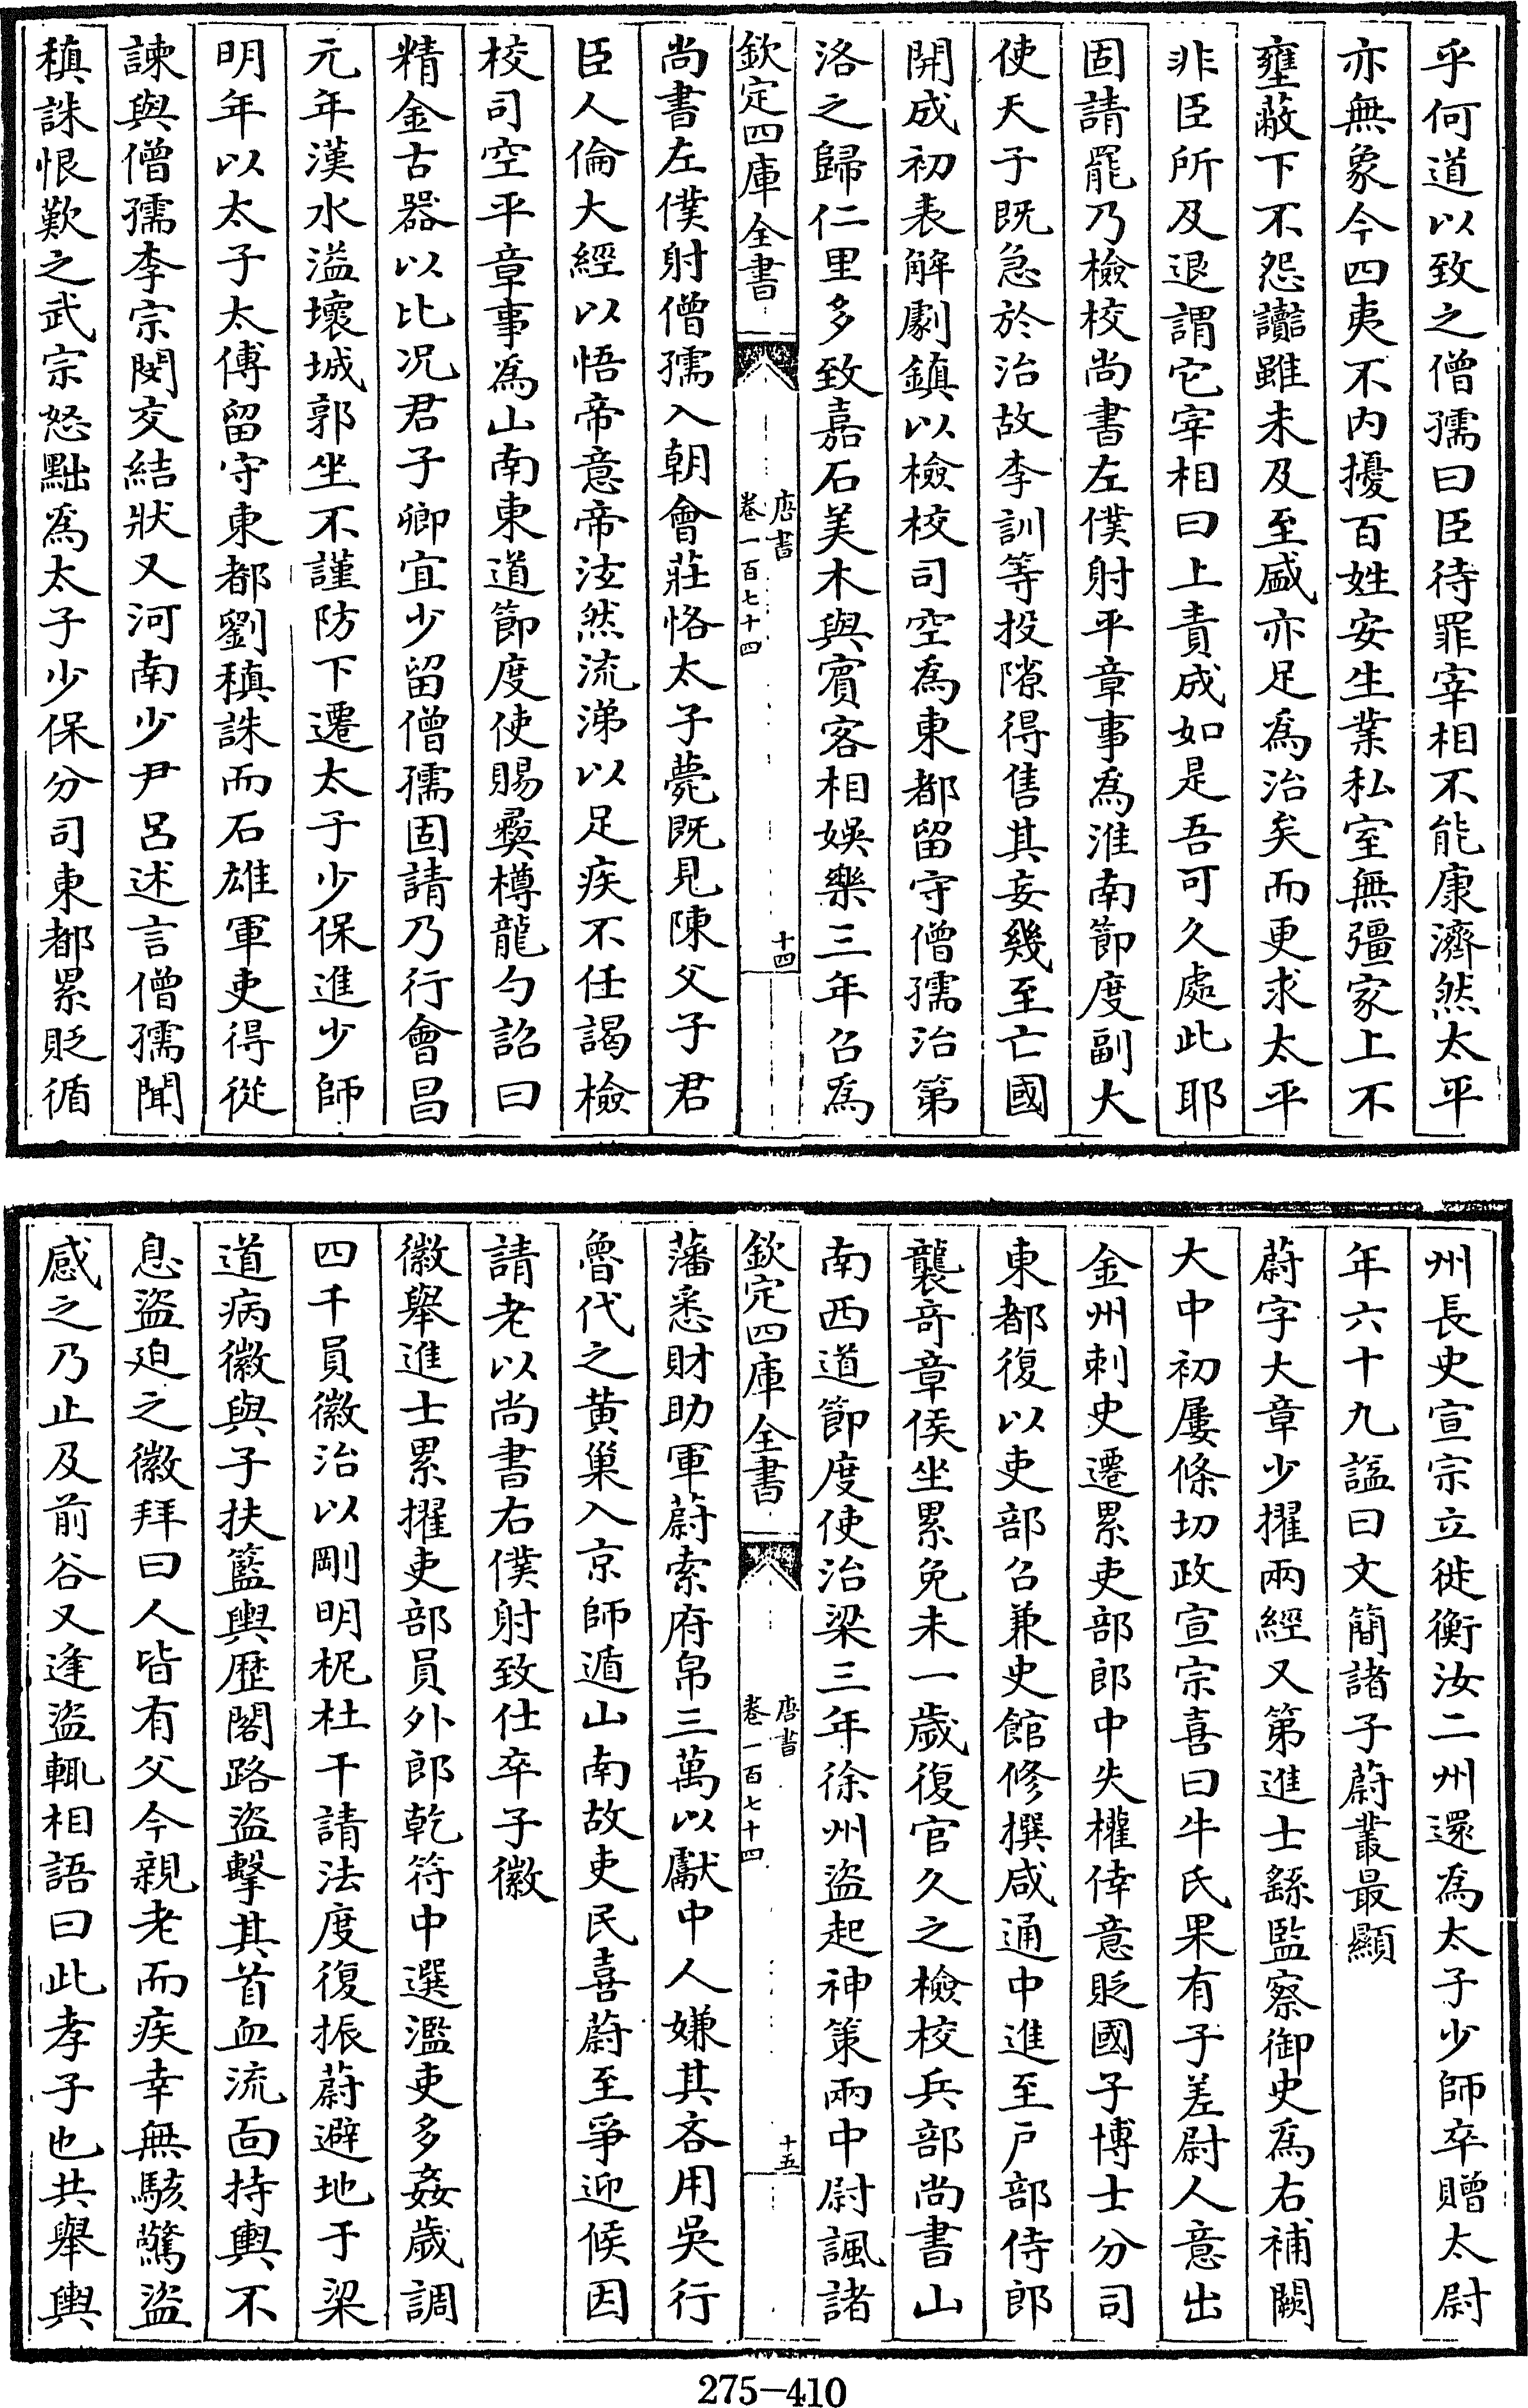 乎何道以致之僧孺曰臣待罪宰相不能康濟然太平
亦無象今四夷不内擾百姓安生業私室無彊家上不
壅蔽下不怨讟雖未及至盛亦足爲治矣而更求太平
非臣所及退謂它宰相曰上責成如是吾可久處此耶
固請罷乃檢校尚書左僕射平章事爲淮南節度副大
使天子既急於治故李訓等投隙得售其妄幾至亡國
開成初表解劇鎮以檢校司空爲東都留守僧孺治第
洛之歸仁里多致嘉石美木與賓客相娛樂三年召爲
欽定四庫全書
唐書
卷一百七十四
十四
尚書左僕射僧孺入朝會莊恪太子薨既見陳父子君
臣人倫大經以悟帝意帝泫然流涕以足疾不任謁檢
校司空平章事爲山南東道節度使賜彝樽龍勺詔曰
精金古器以比况君子卿宜少留僧孺固請乃行會昌
元年漢水溢壞城郭坐不謹防下遷太子少保進少師
明年以太子太傅留守東都劉稹誅而石雄軍吏得從
諫與僧孺李宗閔交結狀又河南少尹呂述言僧孺聞
稹誅恨歎之武宗怒黜爲太子少保分司東都累貶循
州長史宣宗立徙衡汝二州還爲太子少師卒贈太尉
年六十九諡曰文簡諸子蔚藂最顯
蔚字大章少擢兩經又第進士繇監察御史爲右補闕
大中初屢條切政宣宗喜曰牛氏果有子差尉人意出
金州刺史遷累吏部郎中失權倖意貶國子博士分司
東都復以吏部召兼史館修撰咸通中進至戶部侍郎
襲奇章侯坐累免未一歲復官久之檢校兵部尚書山
南西道節度使治梁三年徐州盜起神策兩中尉諷諸
欽定四庫全書
唐書
卷一百七十四
十五
藩悉財助軍蔚索府帛三萬以獻中人嫌其吝用吳行
魯代之黄巢入京師遁山南故吏民喜蔚至爭迎候因
請老以尚書右僕射致仕卒子徽
徽舉進士累擢吏部員外郎乾符中選濫吏多姦歲調
四千員徽治以剛明柅杜干請法度復振蔚避地于梁
道病徽與子扶籃輿歷閣路盜擊其首血流面持輿不
息盜迫之徽拜曰人皆有父今親老而疾幸無駭驚盜
感之乃止及前谷又逢盜輒相語曰此孝子也共舉輿
275-410